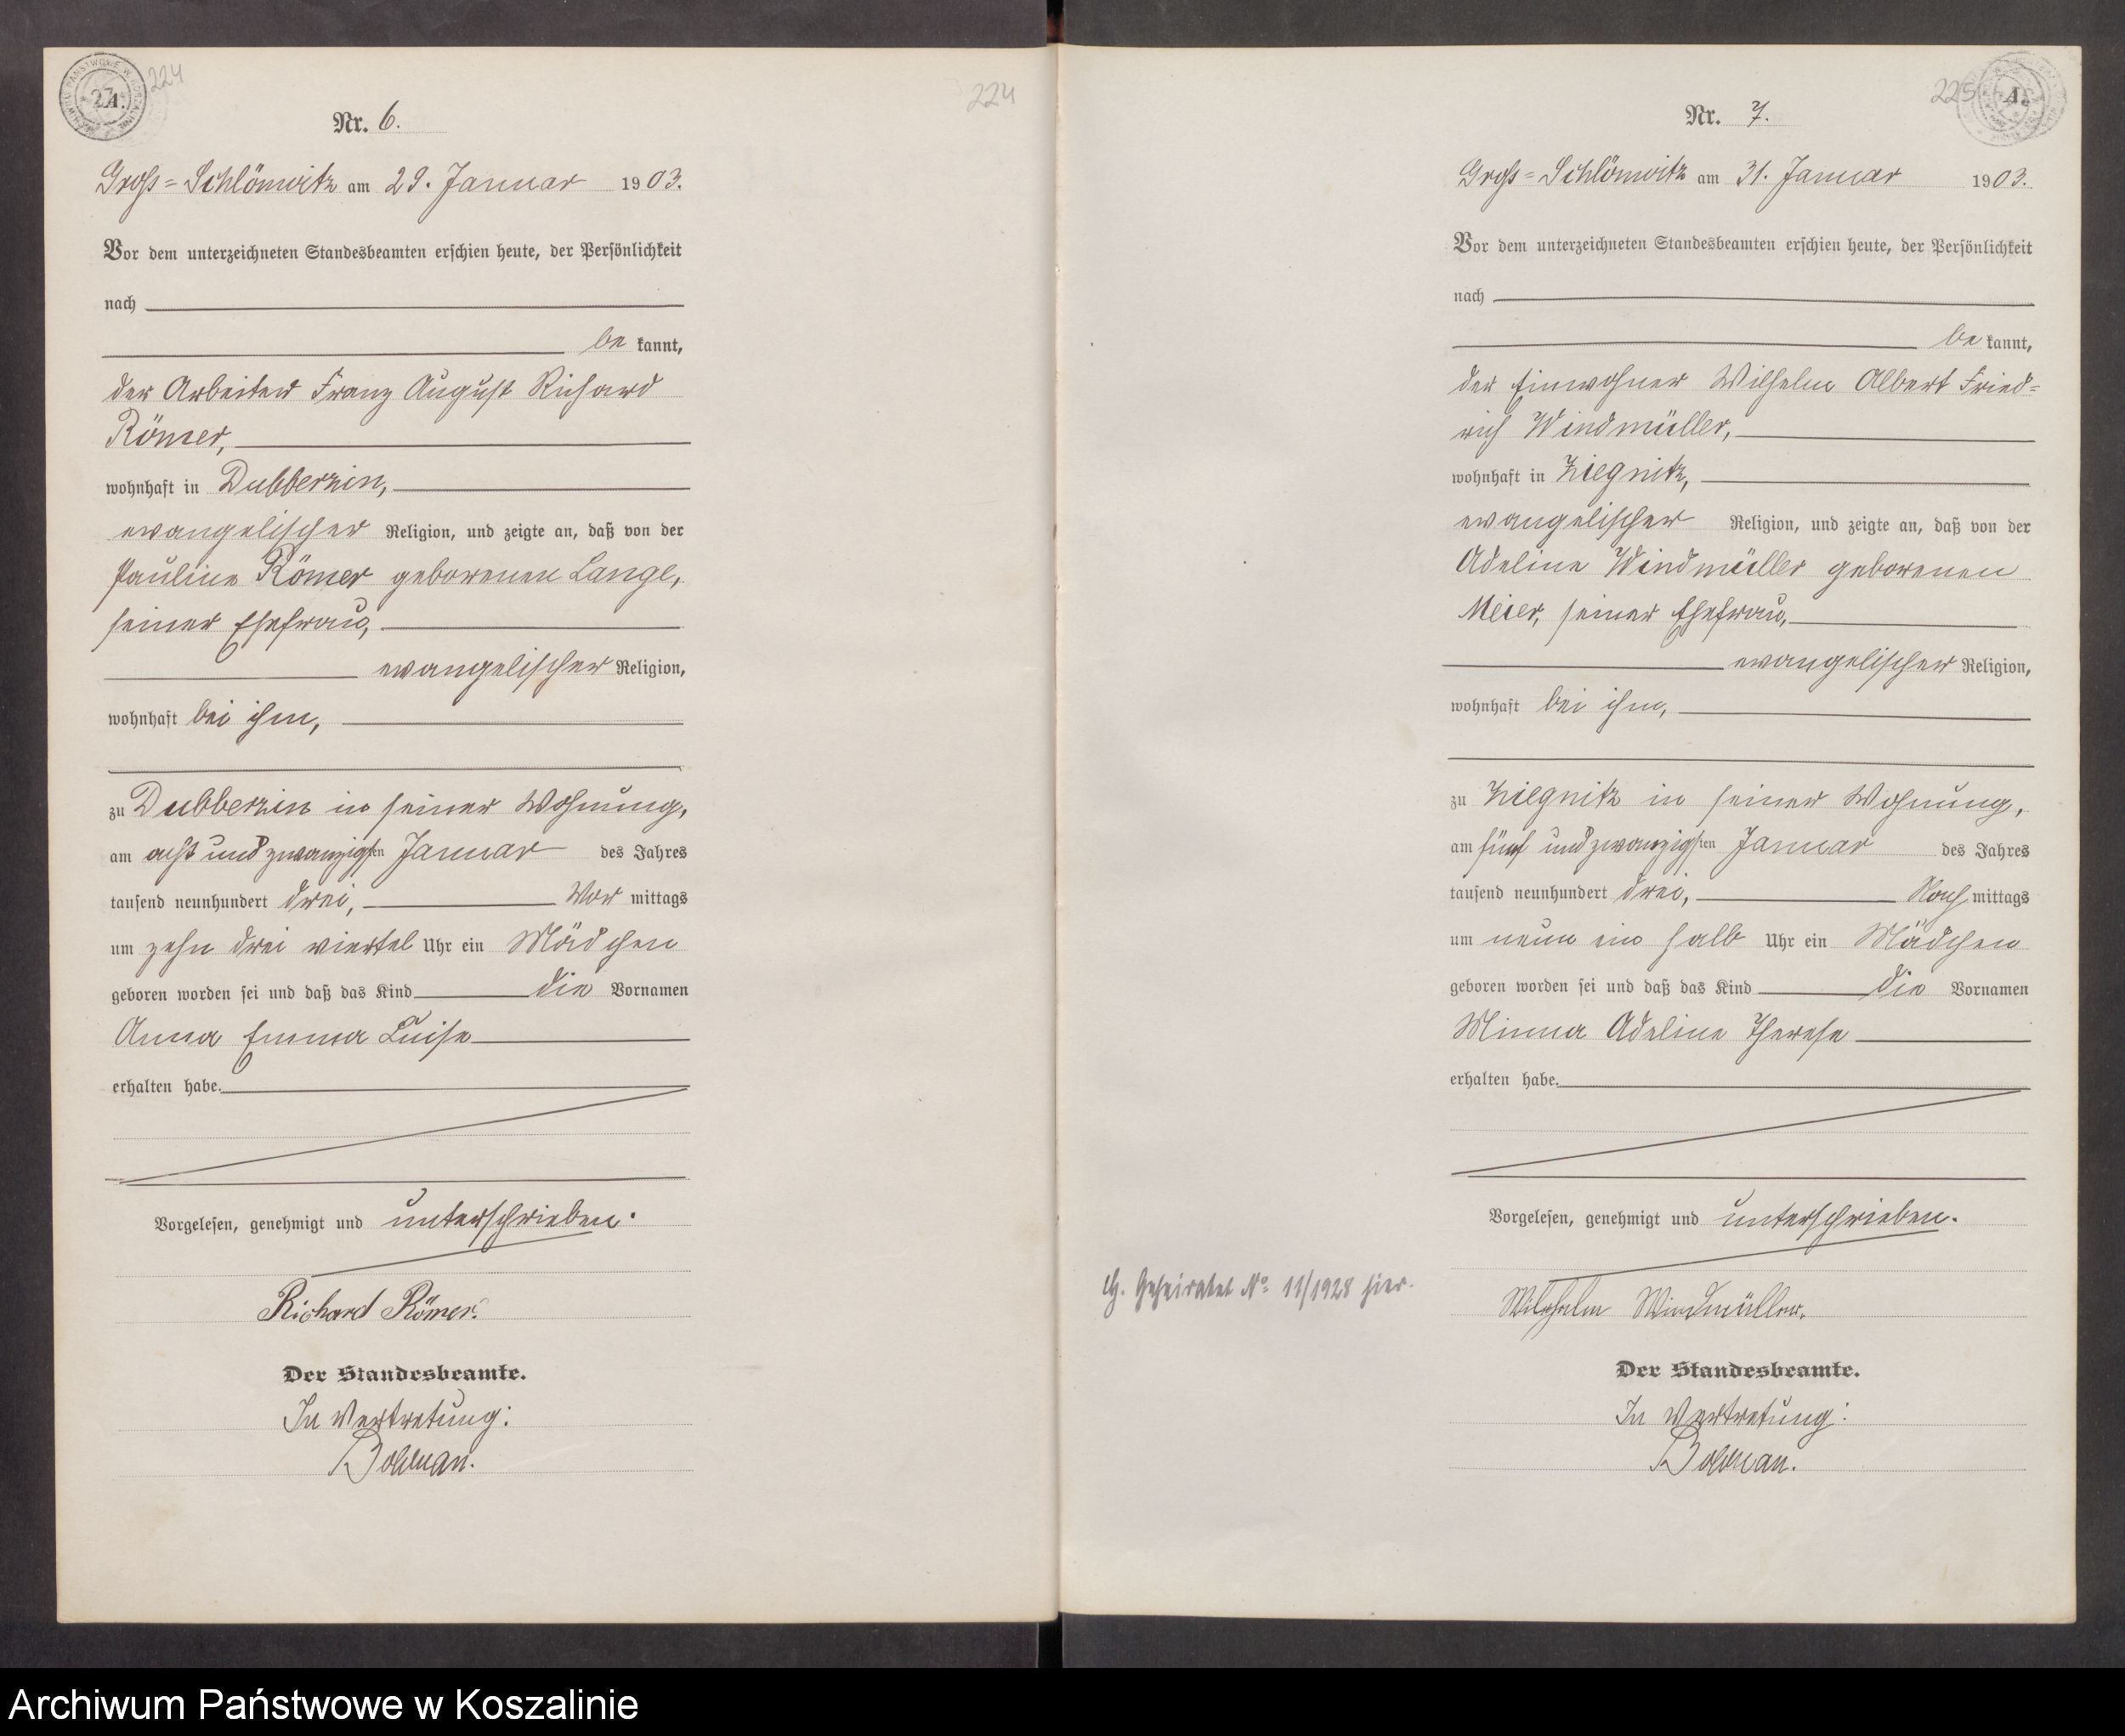 224
224
Nr. 6.
Groß=Schlönwitz am 29. Januar 1903.
Vor dem unterzeichneten Standesbeamten erschien heute, der Persönlichkeit
nach
be kannt,
der Arbeiter Franz August Richard
Römer,
wohnhaft in Dubberzin,
evangelischer Religion, und zeigte an, daß von der
Pauline Römer geborenen Lange,
seiner Ehefrau,
evangelischer Religion,
wohnhaft bei ihm,
zu Dubberzin in seiner Wohnung,
am acht und zwanzigsten Januar des Jahres
tausend neunhundert drei, Vor mittags
um zehn drei viertel Uhr ein Mädchen
geboren worden sei und daß das Kind die Vornamen
Anna Emma Luise
erhalten habe.
Vorgelesen, genehmigt und unterschrieben.
Richard Römer.
Der Standesbeamte.
In Vertretung:
225
A.
Nr. 7.
Groß=Schlönwitz am 31. Januar 1903.
Vor dem unterzeichneten Standesbeamten erschien heute, der Persönlichkeit
nach
be kannt,
der Einwohner Wilhelm Albert Fried=
rich Windmüller,
wohnhaft in Ziegnitz,
evangelischer Religion, und zeigte an, daß von der
Adeline Windmüller geborenen
Meier, seiner Ehefrau,
evangelischer Religion,
wohnhaft bei ihm,
zu Ziegnitz in seiner Wohnung,
am fünf und zwanzigsten Januar des Jahres
tausend neunhundert drei, Nach mittags
um neun ein halb Uhr ein Mädchen
geboren worden sei und daß das Kind die Vornamen
Minna Adeline Therese
erhalten habe.
Vorgelesen, genehmigt und unterschrieben.
Geheiratet No 11/1928 hier.
Wilhelm Windmüller.
Der Standesbeamte.
In Vertretung:
Archiwum Państwowe w Koszalinie